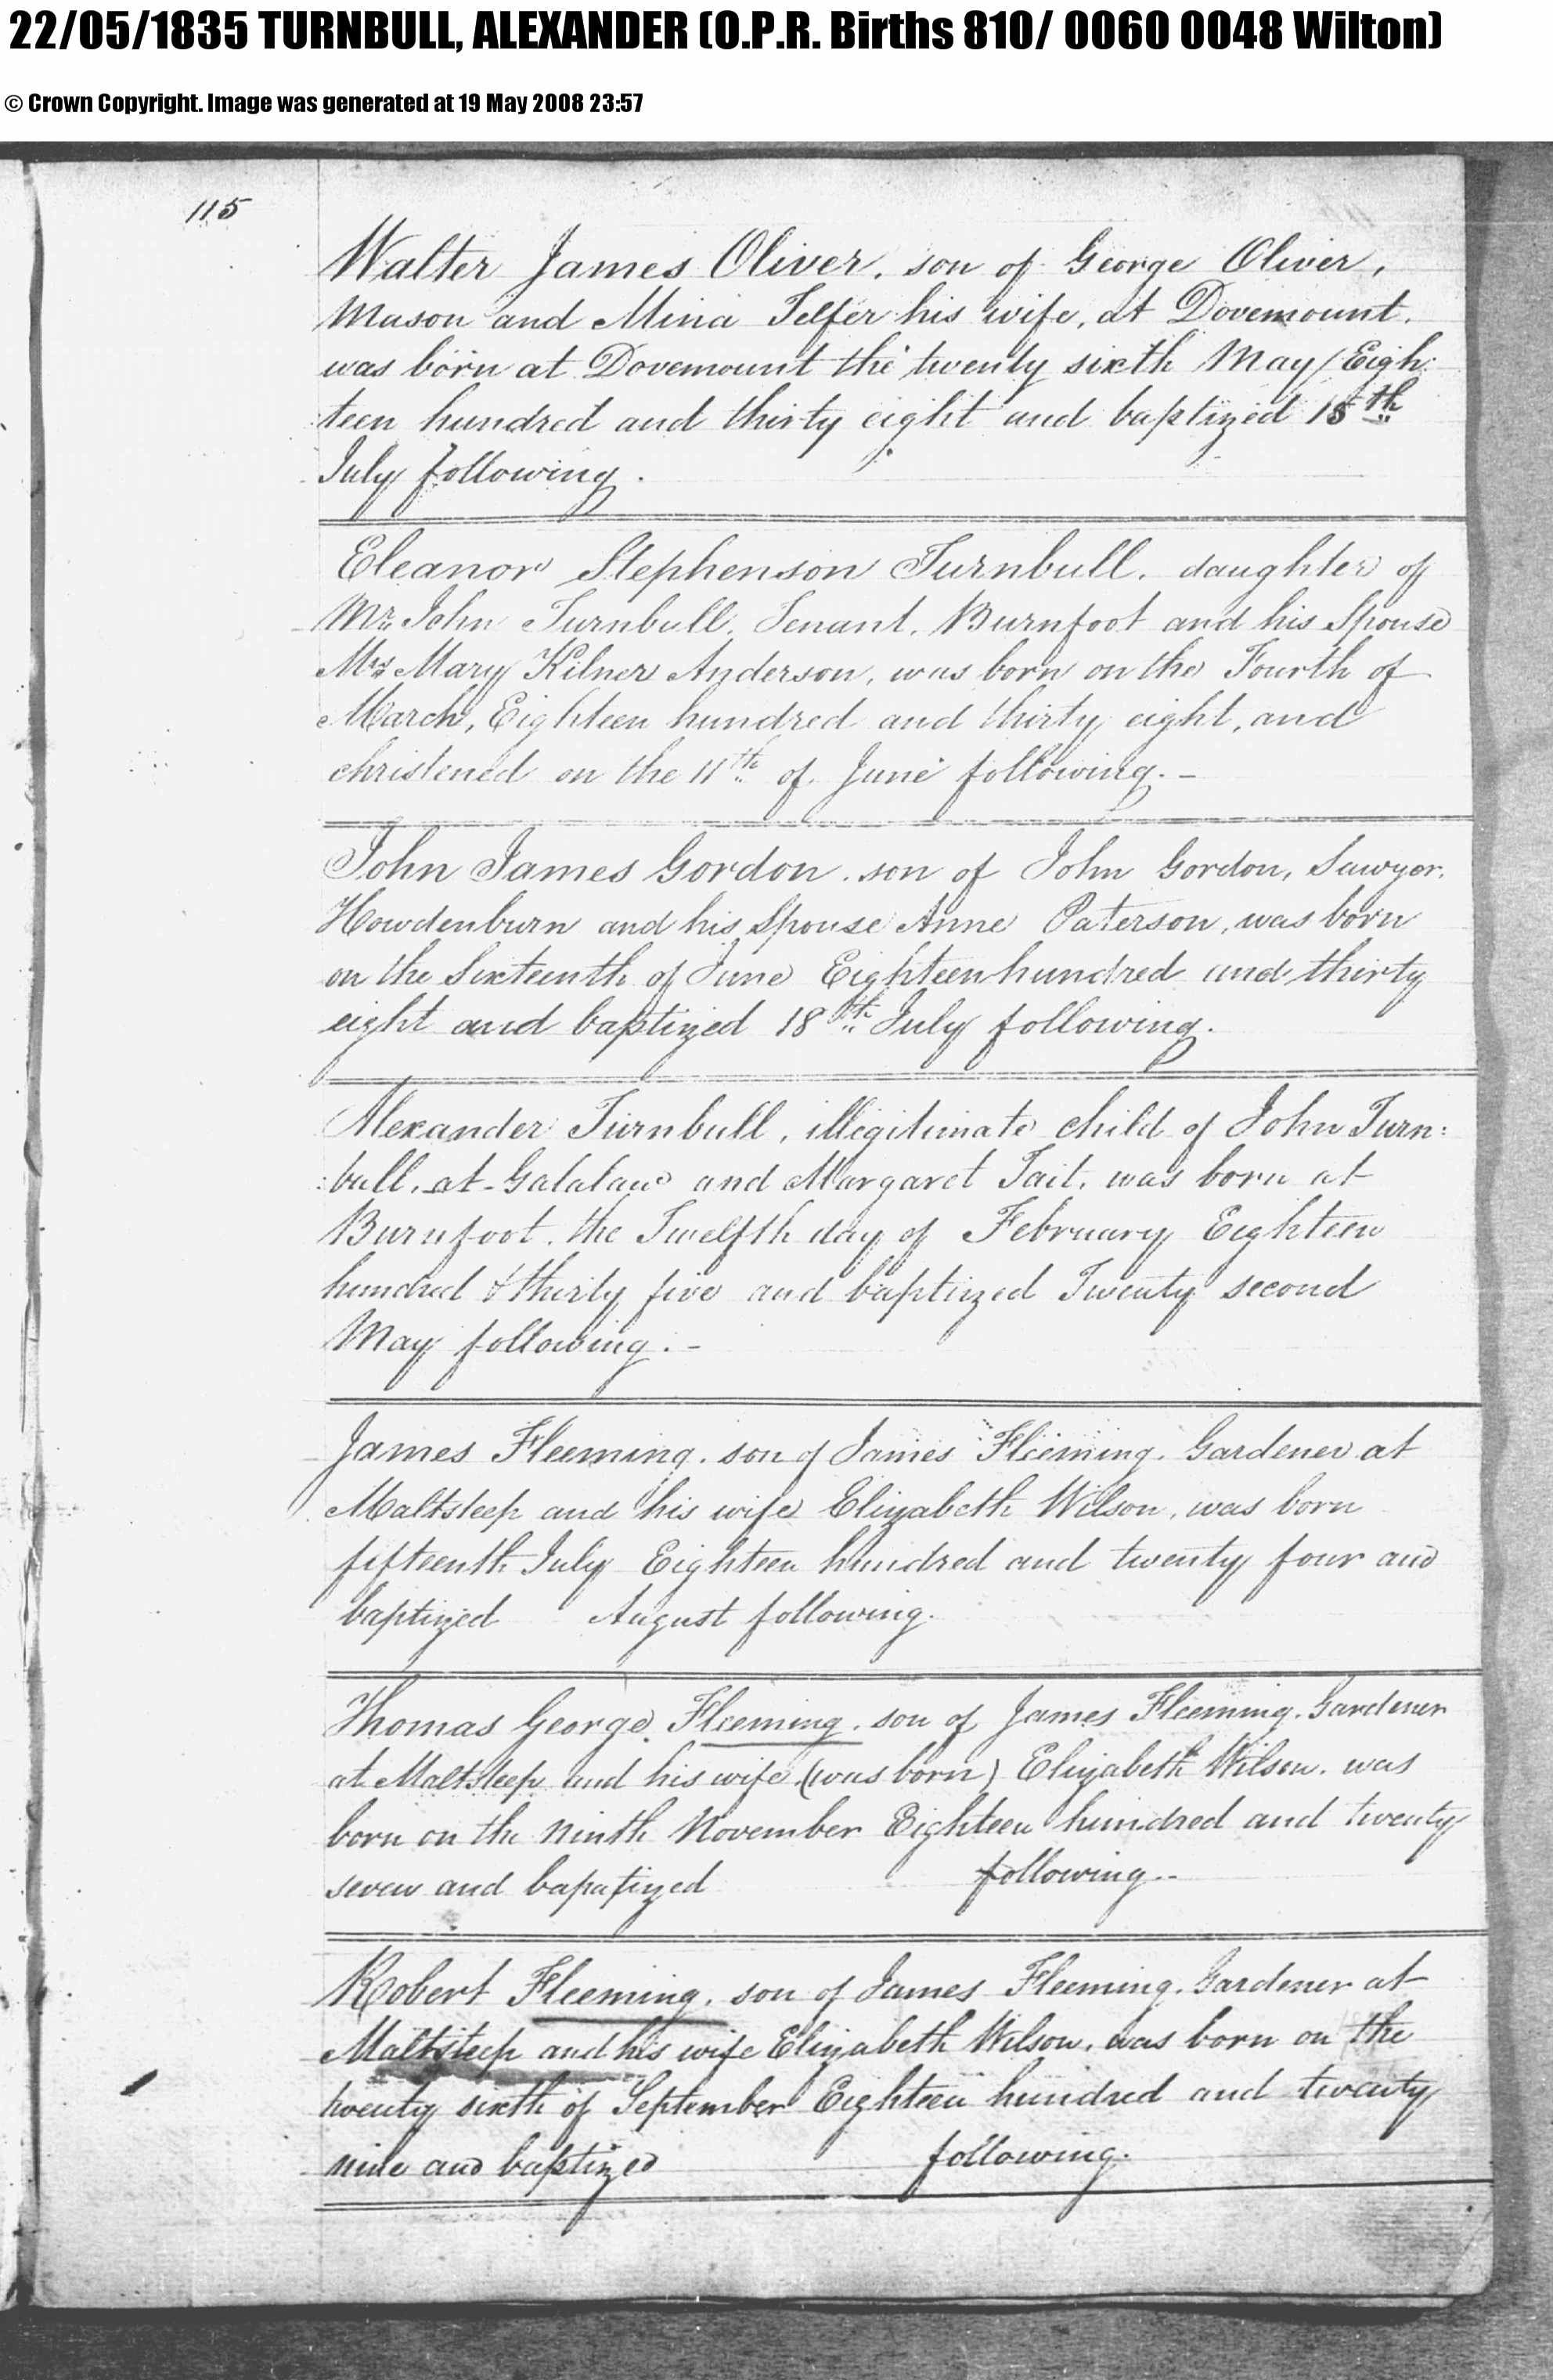 22/05/1835 TURNBULL, ALEXANDER (O.P.R. Births 810/ 0060 0048 Wilton)
© Crown Copyright. Image was generated at 19 May 2008 23:57
115
Walter James Oliver, son of George Oliver,
Mason and Mina Telfer his wife, at Dovemount,
was born at Dovemount the twenty sixth May Eigh:
:teen hundred and thirty eight and baptized 15th
July following.
Eleanor Stephenson Turnbull, daughter of
Mr. John Turnbull, Tenant, Burnfoot and his Spouse
Mrs Mary Kilner Anderson, was born on the Fourth of
March, Eighteen hundred and thirty eight, and
christened on the 11th of June following. -
John James Gordon, son of John Gordon, Sawyer,
Howdenburn and his Spouse Anne Paterson, was born
on the Sixteenth of June Eighteen hundred and thirty
eight and baptized 18th July following.
Alexander Turnbull, illegitimate child of John Turn:
:bull, at Galalaw and Margaret Tait, was born at
Burnfoot, the Twelfth day of February Eighteen
hundred & thirty five and baptized Twenty second
May following. -
James Fleeming, son of James Fleeming, Gardener at
Maltsteep and his wife Elizabeth Wilson, was born
fifteenth July Eighteen hundred and twenty four and
baptized August following.
Thomas George Fleeming, son of James Fleeming, Gardener
at Maltsteep and his wife (was born) Elizabeth Wilson, was
born on the ninth November Eighteen hundred and twenty
seven and bapatized following..
Robert Fleeming, son of James Fleeming, Gardener at
Maltsteep and his wife Elizabeth Wilson, was born on the
twenty sixth of September Eighteen hundred and twenty
nine and baptized following.